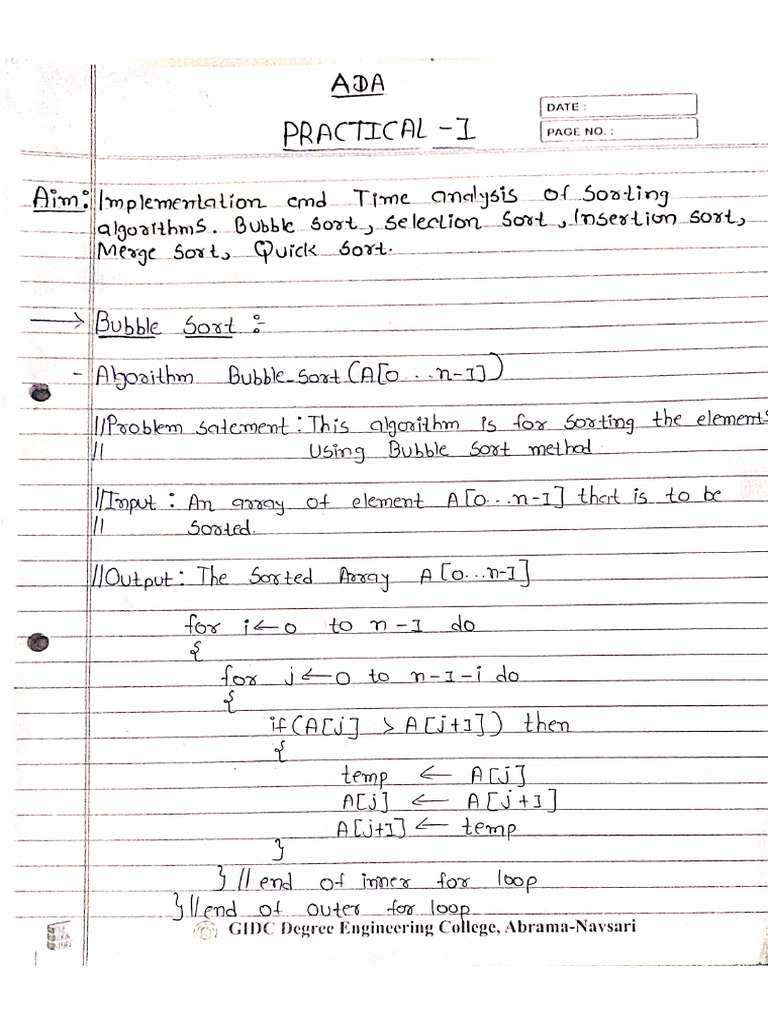 ADA
DATE :
PRACTICAL - I
PAGE NO. :
Aim: Implementation and Time analysis of sorting
algorithms. Bubble sort, Selection sort, Insertion sort,
Merge sort, Quick sort.
→ Bubble Sort :-
- Algorithm Bubble-sort (A[0...n-1])
//Problem satement : This algorithm is for sorting the elements
// using Bubble sort method
//Input : An array of element A[0...n-1] that is to be
// sorted.
//Output : The Sorted Array A[0...n-1]
for i ← 0 to n-1 do
{
for j ← 0 to n-1-i do
{
if (A[j] > A[j+1]) then
{
temp ← A[j]
A[j] ← A[j+1]
A[j+1] ← temp
}
} // end of inner for loop
} // end of outer for loop
GIDC Degree Engineering College, Abrama-Navsari